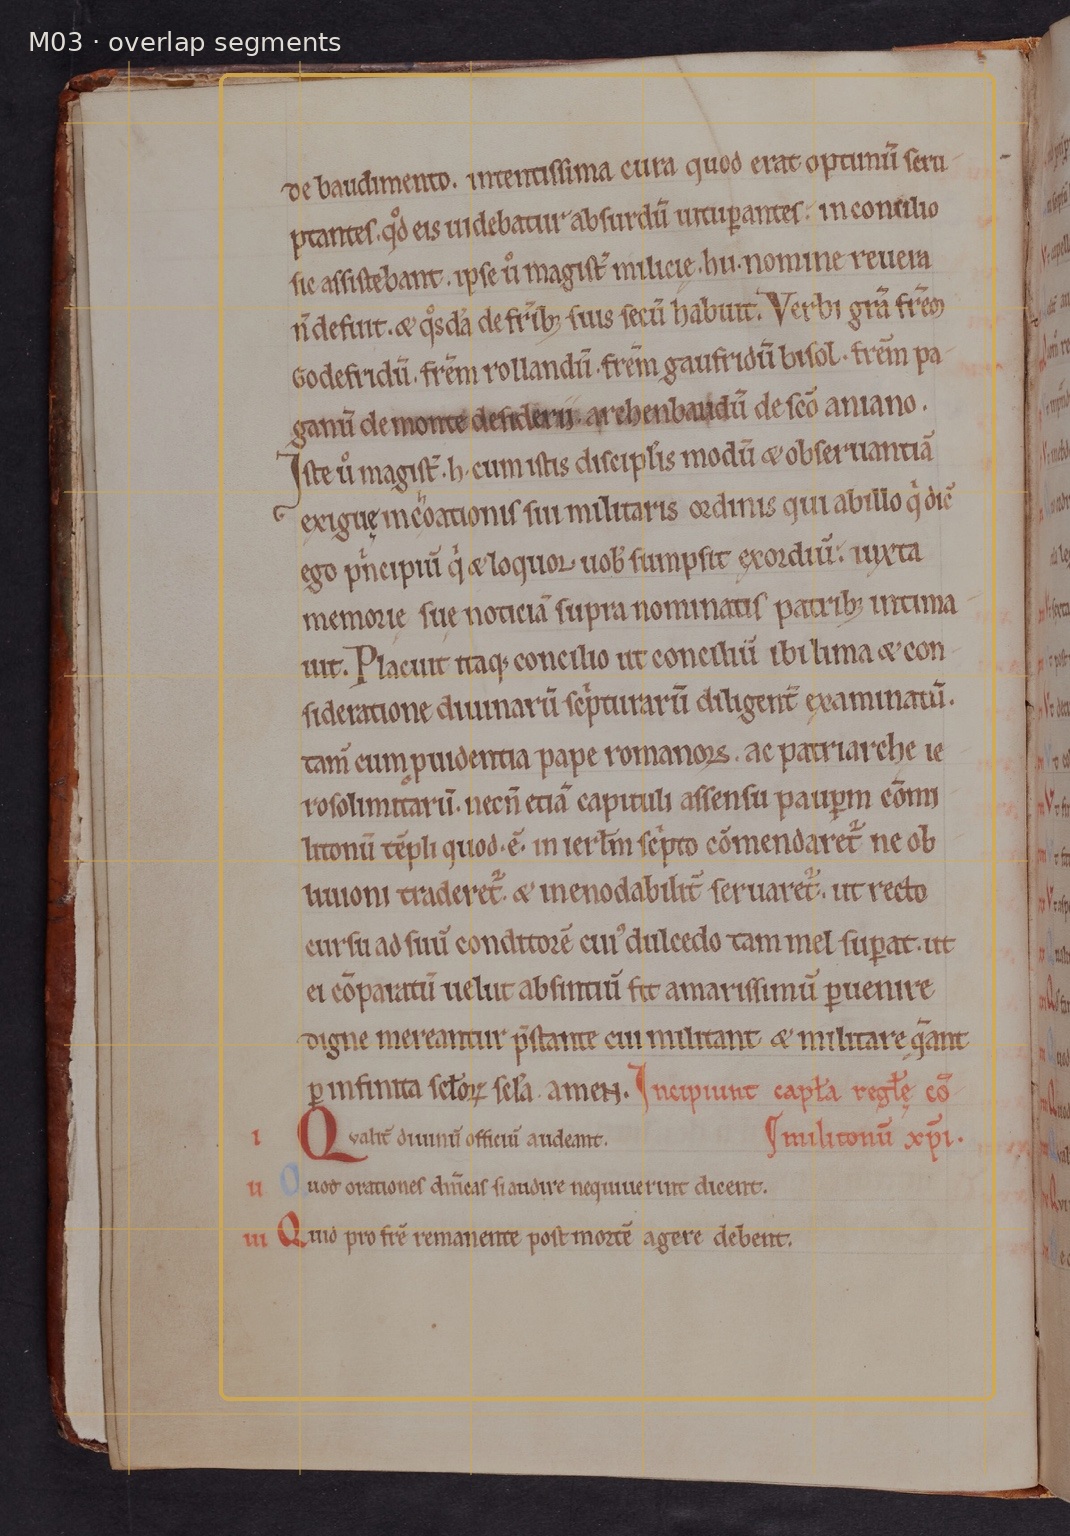 M03 · overlap segments
de baudimento. intentissima cura quod erat optimū scru
ptantes. qd̊ eis uidebatur absurdū uitup̱antes. in concilio
sic assistebant. ipse ů magist̄ milicie .hu. nomine reuera
n̄ defuit. & qͦsdā de fr̄ib; suis secū habuit. Verbi grā frēm
Godefridū. frēm rollandū. frēm gaufridū bisol. frēm pa
ganū de monte desiderii. archenbaudū de scō aniano.
Iste ů magist̄ .h. cum istis discipłis modū & obseruantiā
exiguę inchoationis sui militaris ordinis qui ab illo qͥ dic̄
ego pͥncipiū qͥ & loquor uob̄ sumpsit exordiū. iuxta
memorię suę noticiā supra nominatis patrib; intima
uit. Placuit itaq; concilio ut conciliū ibi lima & con
sideratione diuinarū scͥpturarū diligent̄ examinatū.
tam̄ cum ꝓuidentia pape romanoꝝ. ac patriarche ie
rosolimitarū. necn̄ etiā capituli assensu paup̱um cōmi
litonū tēpli quod .ē. in ierłm scͥpto cōmendaret̄ ne ob
liuioni traderet̄. & inenodabilit̄ seruaret̄. ut recto
cursu ad suū conditorē cuiꝰ dulcedo tam mel sup̱at. ut
ei cōparatū uelut absintiū sit amarissimū p̱uenire
digne mereantur p̄stante cui militant & militare q̄ant
p̱ infinita scłoꝝ scła. amen. Incipiunt capła regłę cō
militonū xp̄i.
i Qvalit̄ diuinū officiū audeant.
ii Quot orationes dn̄icas si audire nequiuerint dicent.
iii Quid pro frē remanente post mortē agere debent.